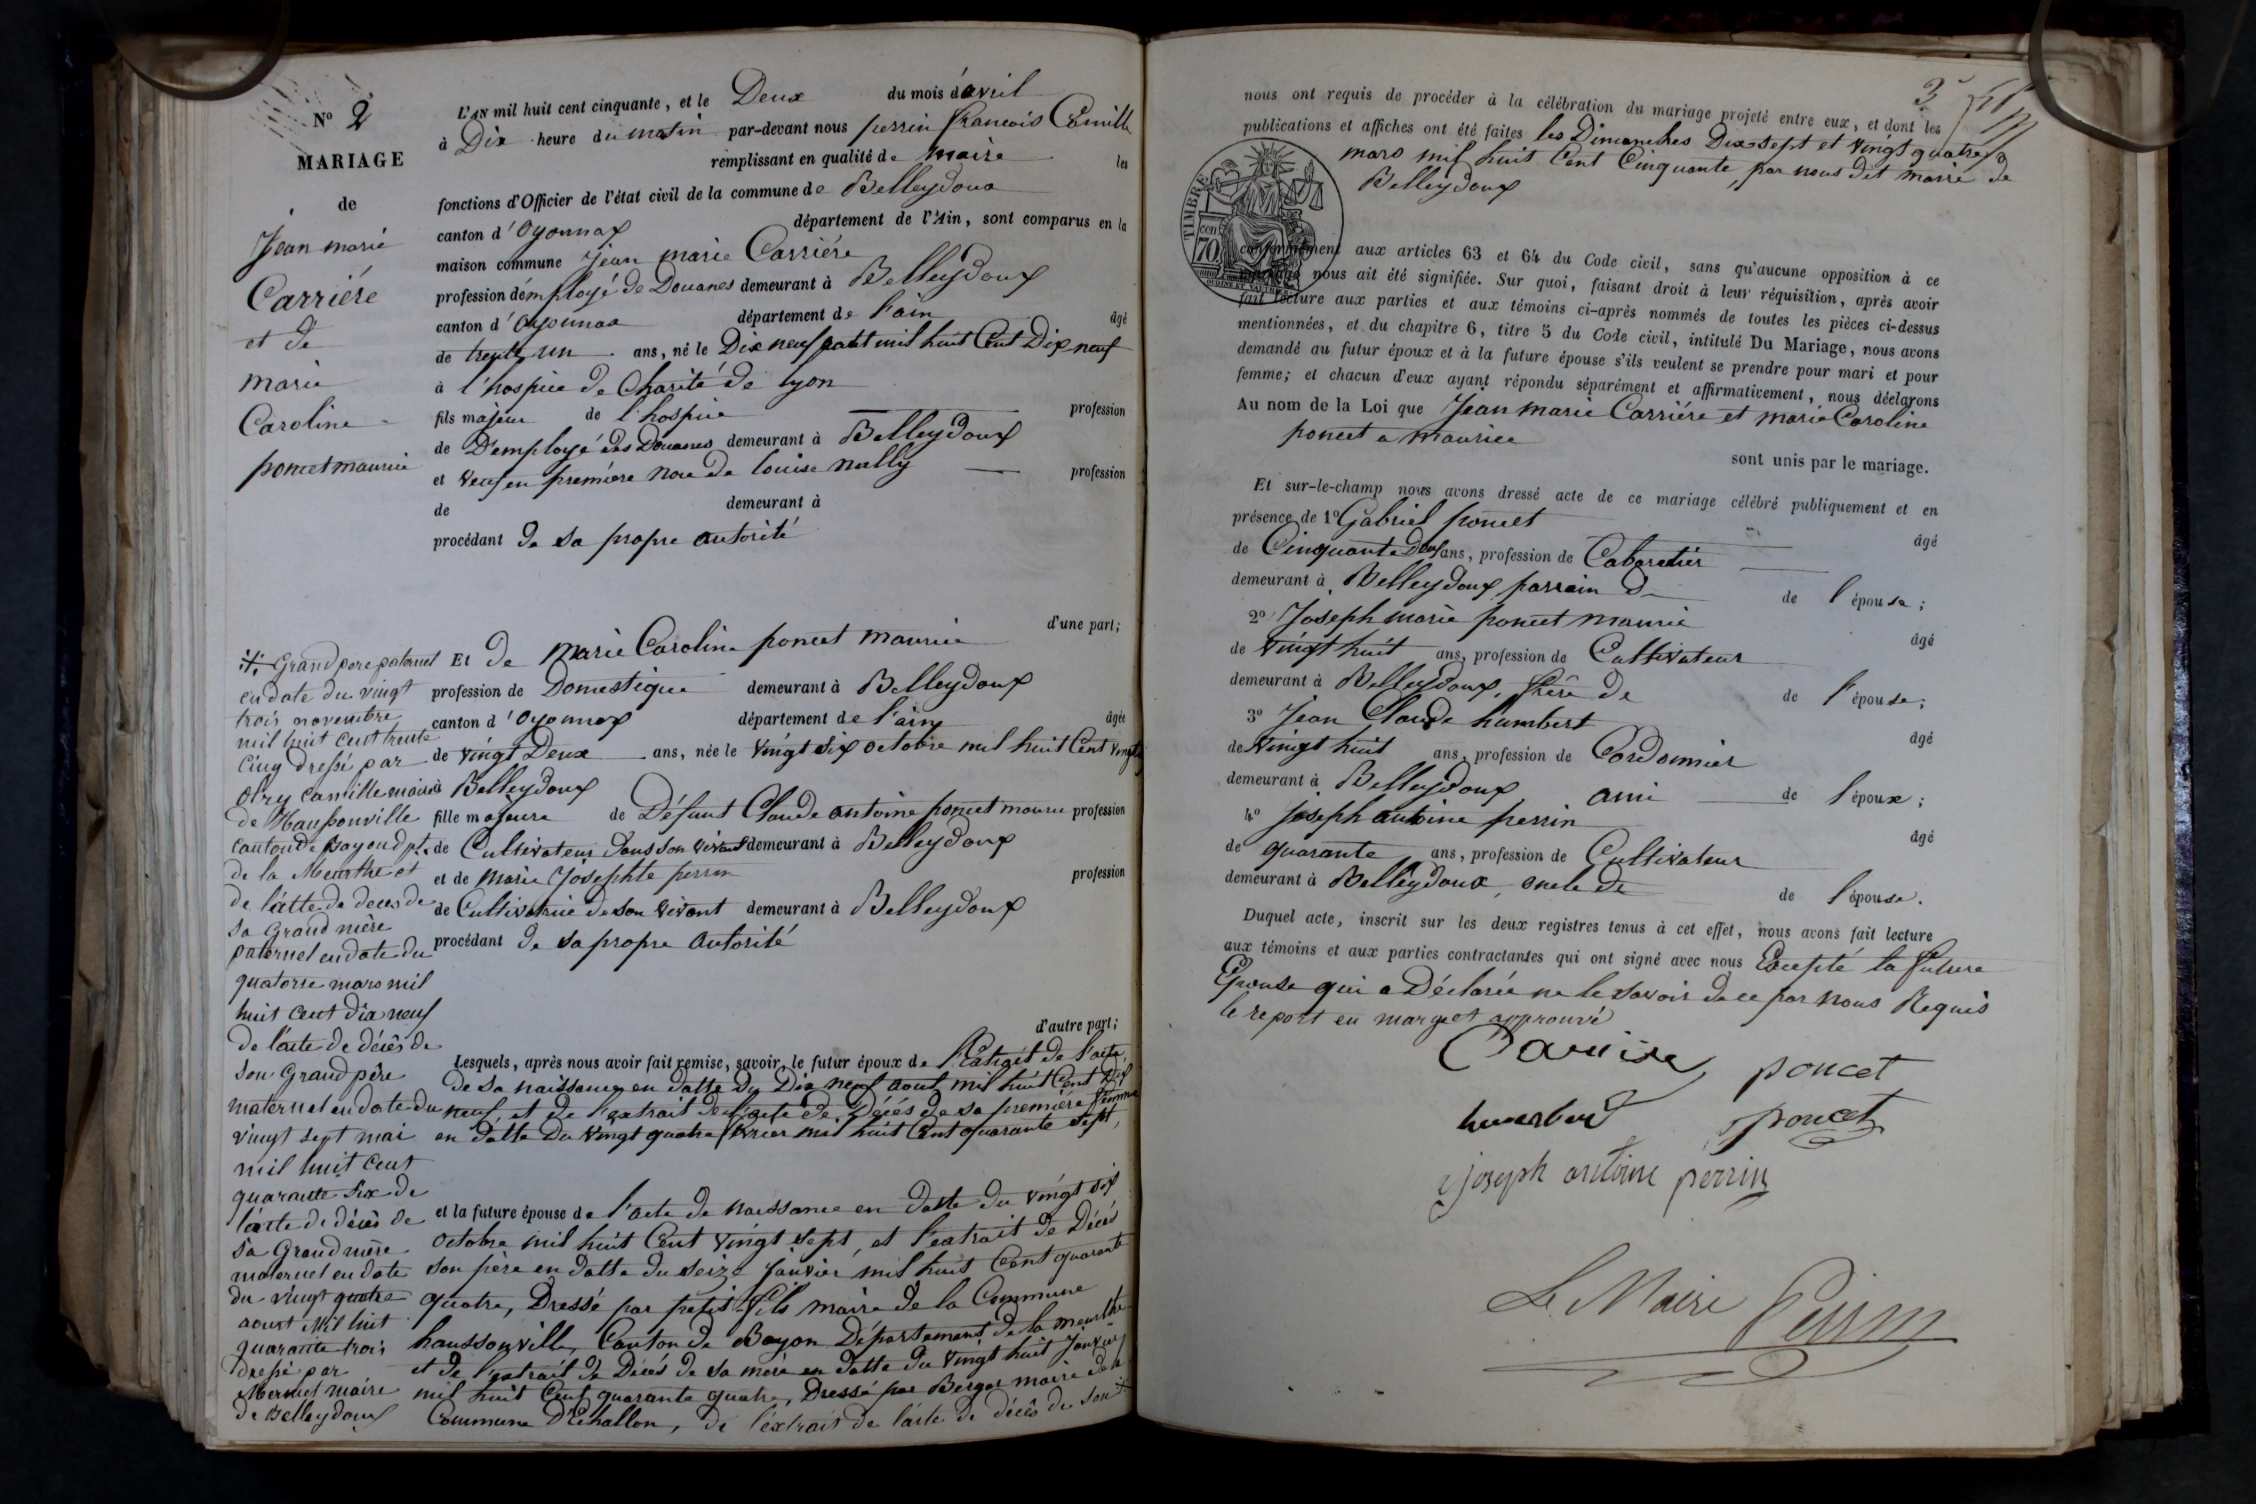 N° 2
MARIAGE
de
Jean marie
Carriére
et de
marie
Caroline
poncet maurice
L'AN mil huit cent cinquante, et le Deux du mois d'avril
à Dix heure du matin par-devant nous perrin francois Camille
remplissant en qualité de maire les
fonctions d'Officier de l'état civil de la commune de Belleydoux
canton d'Oyonnax département de l'Ain, sont comparus en la
maison commune Jean marie Carriére
profession d'émployé de Douanes demeurant à Belleydoux
canton d'Oyonnax département de l'ain âgé
de trente un ans, né le Dix neuf aout mil huit Cent Dix neuf
à l'hospice de Charité de lyon
fils majeur de l'hospice profession
de D'employé des Douanes demeurant à Belleydoux
et veuf en premiére noce de louise nully profession
de demeurant à
procédant de sa propre autorité
d'une part;
Et de marie Caroline poncet maurice
profession de Domestique demeurant à Belleydoux
canton d'Oyonnax département de l'ain âgée
de vingt Deux ans, née le vingt six octobre mil huit Cent vingt
à Belleydoux
fille majeure de Défunt Claude antoine poncet maurice profession
de Cultivateur dans son vivant demeurant à Belleydoux
et de marie Josephte perrin profession
de Cultivatrice de son vivant demeurant à Belleydoux
procédant de sa propre autorité
d'autre part;
Lesquels, après nous avoir fait remise, savoir, le futur époux de l'Extrait de l'acte
de sa naissance en datte du Dix neuf aout mil huit Cent Dix
neuf, et de l'extrait de l'acte de Décés de sa premiére femme
en datte du vingt quatre fevrier mil huit Cent quarante sept,
et la future épouse de l'acte de naissance en datte du vingt six
octobre mil huit Cent vingt sept, et l'extrait de Décés
son père en datte du seize janvier mil huit Cent quarante
quatre, Dressé par petit-fils maire de la Commune
haussonville, Canton de Bayon Département de la meurthe
et de l'extrait de Décés de sa mére en datte du vingt huit Janvier
mil huit Cent quarante quatre, Dressé par Berger maire de la
Commune D'Echallon, de l'extrait de l'acte de décés de son
Grand pere paternel
en date du vingt
trois novembre
mil huit cent trente
cinq dressé par
Olry Camille maire
de Haussonville
canton de Bayon dpt.
de la Meurthe et
de l'atte de deces de
sa Grand mère
paternel en date du
quatorze mars mil
huit cent dix neuf
de l'acte de décés de
son Grand père
maternel en date du
vingt sept mai
mil huit cent
quarante six de
l'acte de décès de
sa Grand mère
maternel en date
du vingt quatre
aoust mil huit
quarante trois
dressé par
Mermet maire
de Belleydoux
3
nous ont requis de procéder à la célébration du mariage projeté entre eux, et dont les
publications et affiches ont été faites les Dimanches Dix sept et vingt quatre
mars mil huit Cent Cinquante, par nous dit maire de
Belleydoux
TIMBRE
70
conformément aux articles 63 et 64 du Code civil, sans qu'aucune opposition à ce
mariage nous ait été signifiée. Sur quoi, faisant droit à leur réquisition, après avoir
fait lecture aux parties et aux témoins ci-après nommés de toutes les pièces ci-dessus
mentionnées, et du chapitre 6, titre 5 du Code civil, intitulé Du Mariage, nous avons
demandé au futur époux et à la future épouse s'ils veulent se prendre pour mari et pour
femme; et chacun d'eux ayant répondu séparément et affirmativement, nous déclarons
Au nom de la Loi que Jean marie Carriére et marie Caroline
poncet a maurice
sont unis par le mariage.
Et sur-le-champ nous avons dressé acte de ce mariage célébré publiquement et en
présence de 1° Gabriel poncet âgé
de Cinquante Deux ans, profession de Cabaretier
demeurant à Belleydoux parrain de de l'épouse;
2° Joseph marie poncet maurice âgé
de vingt huit ans, profession de Cultivateur
demeurant à Belleydoux, frère de de l'épouse;
3° Jean Claude humbert âgé
de vingt huit ans, profession de Cordonnier
demeurant à Belleydoux ami de l'époux;
4° joseph antoine perrin âgé
de quarante ans, profession de Cultivateur
demeurant à Belleydoux, oncle de de l'épouse.
Duquel acte, inscrit sur les deux registres tenus à cet effet, nous avons fait lecture
aux témoins et aux parties contractantes qui ont signé avec nous Excepté la future
Epouse qui a Déclarée ne le savoir de ce par nous Requis
le report en marge et approuvé
Carriere
poncet
humbert
poncet
joseph antoine perrin
Le Maire Perrin